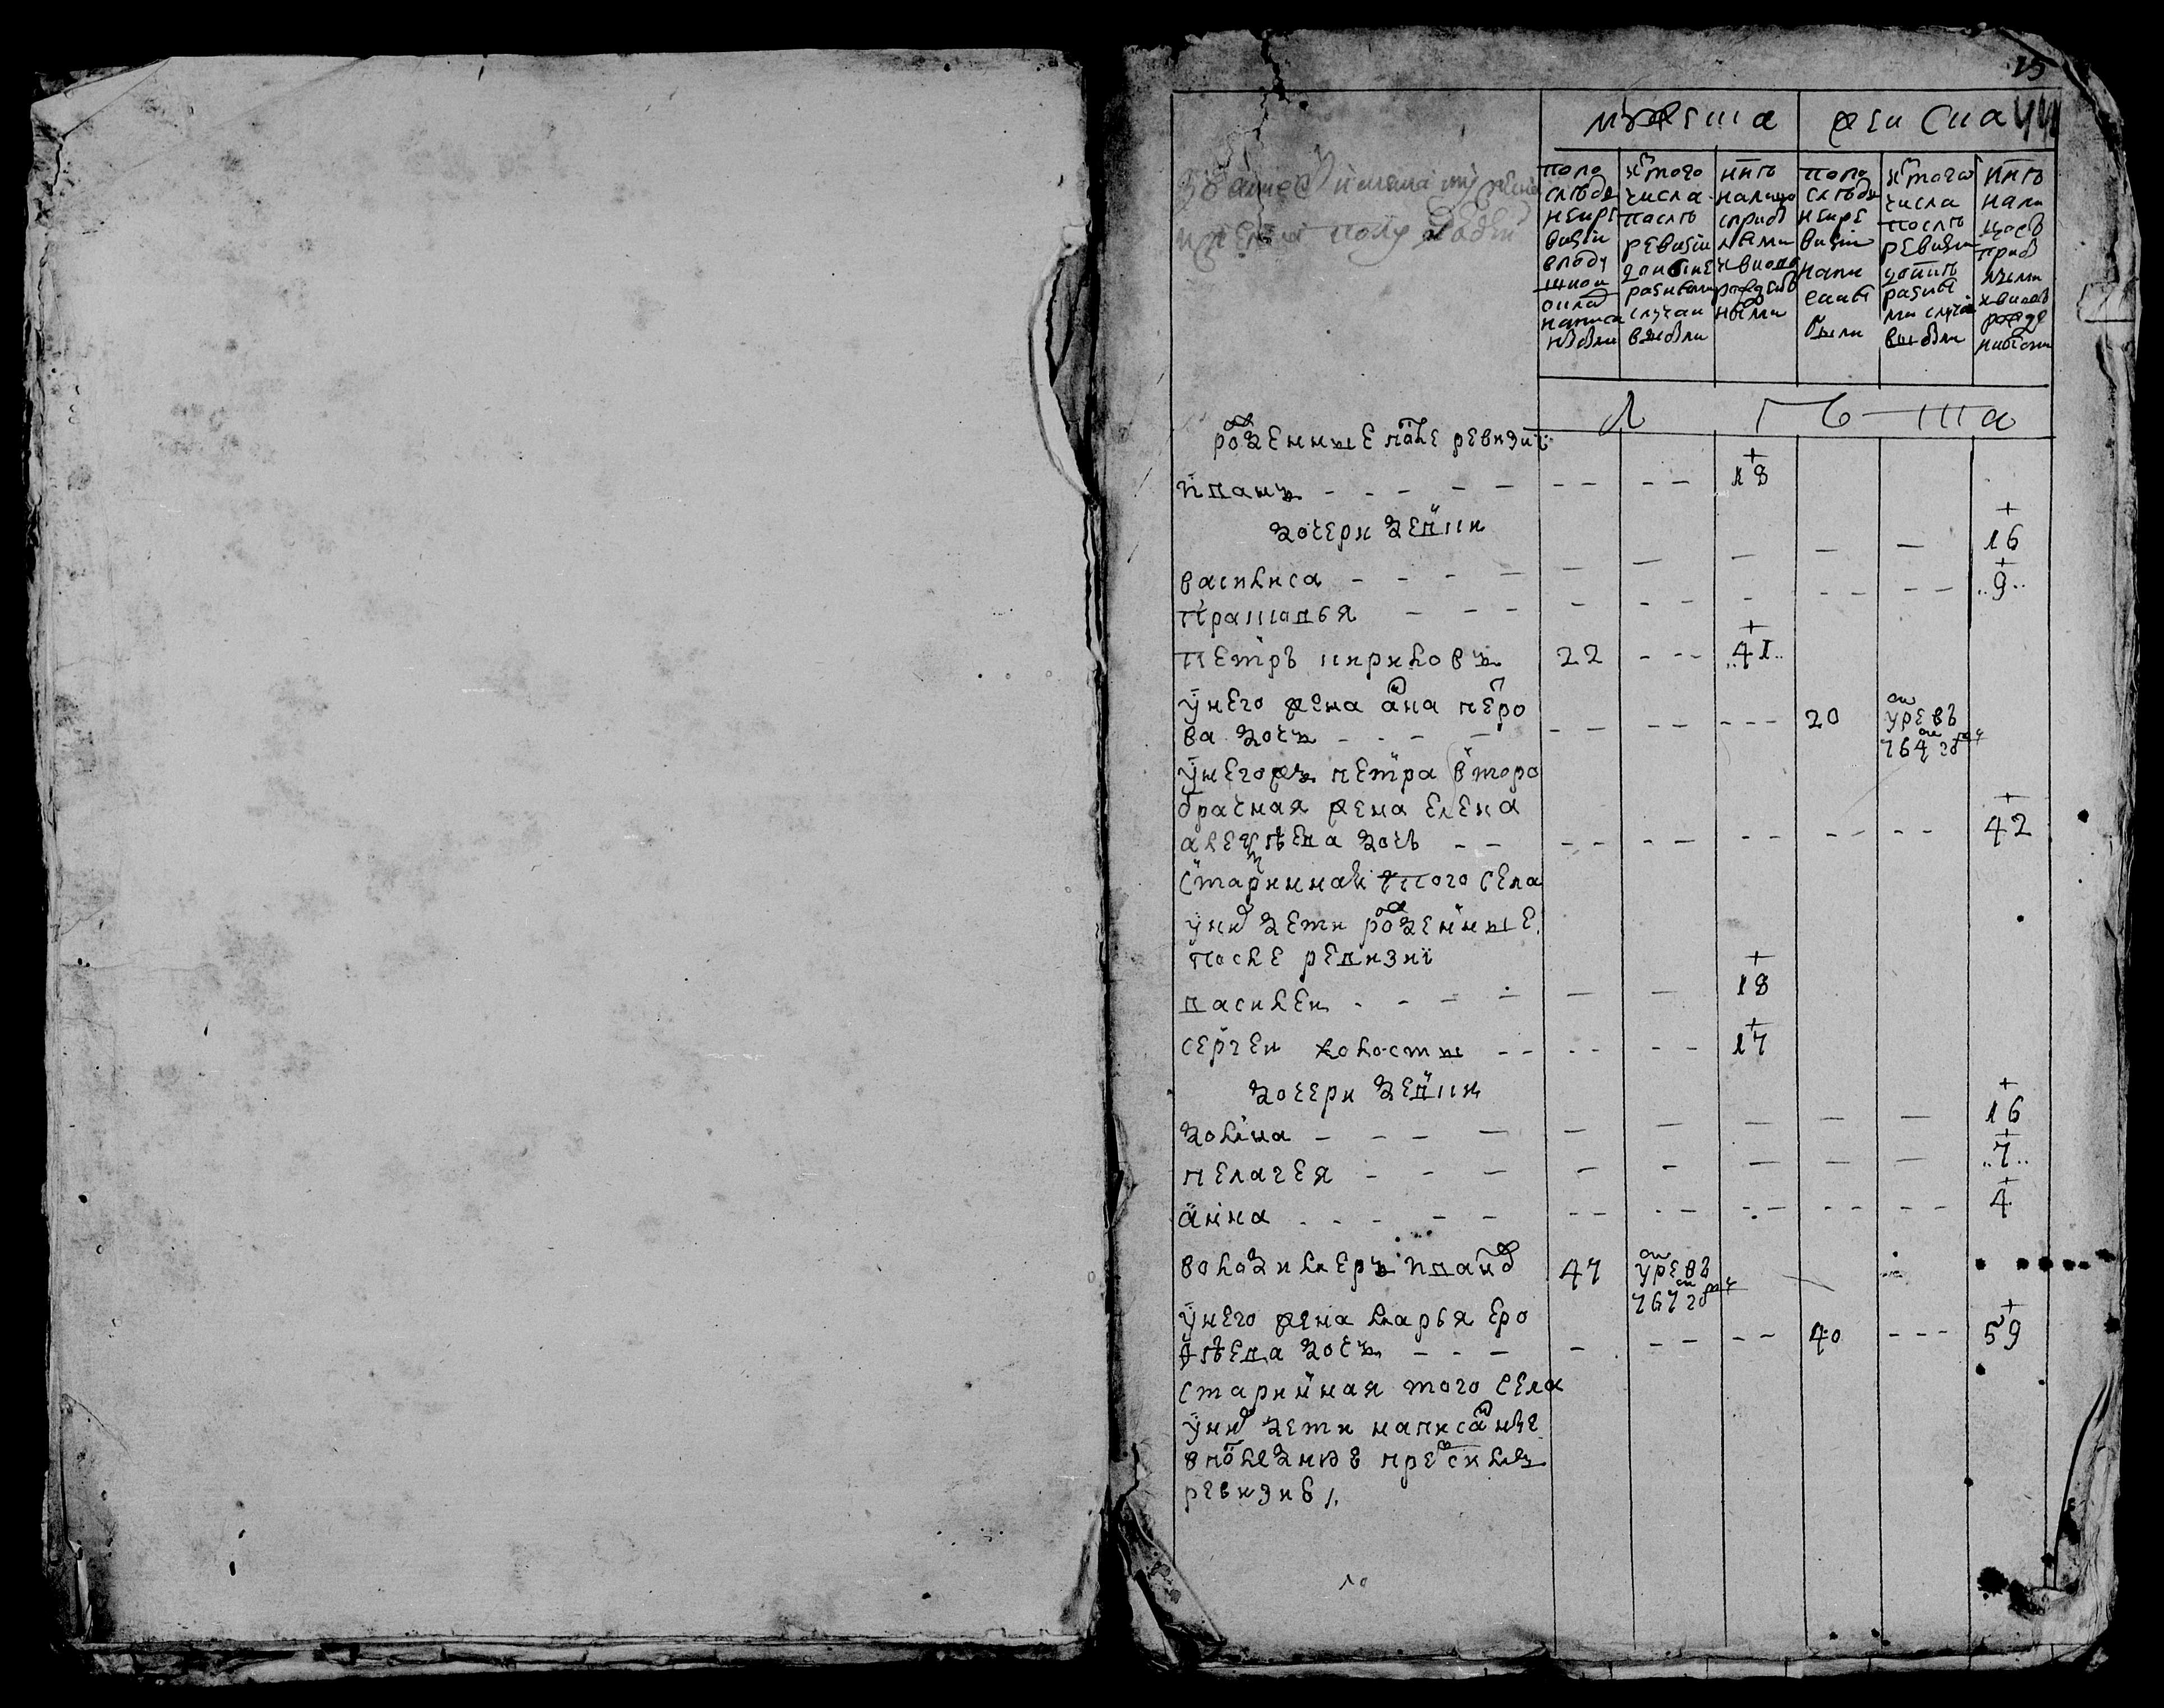 15
мужеска
женска
по последней ревизии в подушном окладе написаны были
ис того числа после ревизии до ныне разными случаи выбыли
ныне налицо с прибылыми и вновь рожденными
по последней ревизии написаны были
ис того числа после ревизии до ныне разными случаи выбыли
ныне налицо с прибылыми и вновь рожденными
лѣта
рожденные после ревизиї
иванъ - - - - - - - - - 18
дочери девки
василиса - - - - - - - - - 16
прасковья - - - - - - - - - 9
петръ кириловъ 22 - - - 41
у него жена анна петро
ва дочь - - - - - - - 20 умре въ 764 году
у него жъ петра второ
брачная жена елена
алексѣева дочь - - - - - - - 42
старинная того села
у них дети рожденные
после ревизиї
василеи - - - - - - 18
сергеи холосты - - - - - 17
дочери девки
домна - - - - - - - - - 16
пелагея - - - - - - - - 7
анна - - - - - - - - - 4
володимеръ иванов 47 умре въ 767 году
у него жена марья еро
фѣева дочь - - - - - - - 40 - - - 59
старинная того села
у них дети написанные
в последнюю пред сим
ревизию